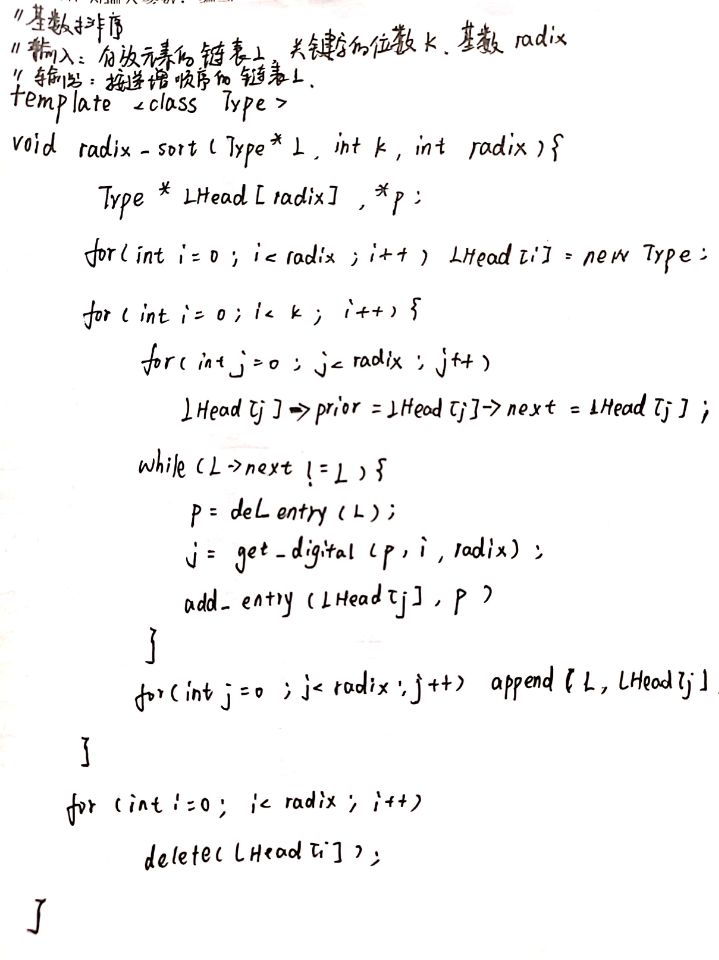 //基数排序
//输入：存放元素的链表L，关键字的位数k、基数 radix
//输出：按递增顺序的链表L.
template <class Type>
void radix_sort(Type* L, int k, int radix){
Type * LHead[radix], *p;
for(int i=0; i< radix; i++) LHead[i] = new Type;
for(int i=0; i< k; i++){
for(int j=0; j< radix; j++)
LHead[j]->prior = LHead[j]->next = LHead[j];
while(L->next != L){
p = del_entry(L);
j = get_digital(p, i, radix);
add_entry(LHead[j], p)
}
for(int j=0; j< radix; j++) append(L, LHead[j]
}
for (int i=0; i< radix; i++)
delete(LHead[i]);
}